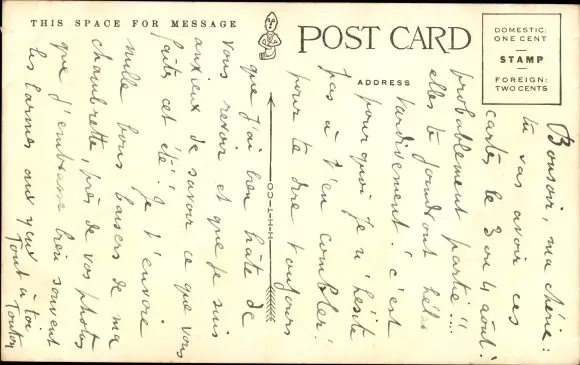 THIS SPACE FOR MESSAGE
POST CARD
ADDRESS
DOMESTIC:
ONE CENT
STAMP
FOREIGN:
TWO CENTS
Bonsoir, ma chérie:
tu vas avoir ces
cartes le 3 ou 4 août:
probablement partie!!...
elles te joindront hélas
tardivement! c'est
pourquoi je n'hésite
pas à t'en combler!
pour te dire toujours
que j'ai bien hâte de
vous revoir et que je suis
anxieux de savoir ce que vous
faites cet été! Je t'envoie
mille bons baisers de ma
chambrette, près de vos photos
que j'embrasse bien souvent
les larmes aux yeux
Tout à toi
Tonton